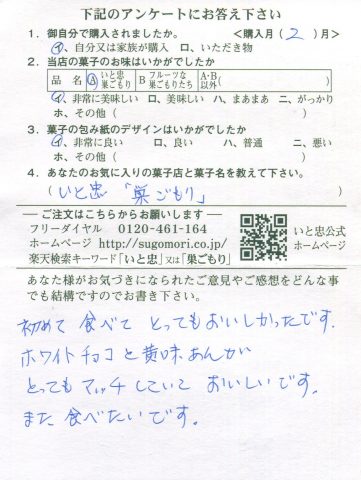 下記のアンケートにお答え下さい
1．御自分で購入されましたか。　＜購入月（ 2 ）月＞
イ、自分又は家族が購入　ロ、いただき物
2．当店の菓子のお味はいかがでしたか
品　名　A いと忠 巣ごもり　B フルーツな 巣ごもりたち　A・B 以外（　　　）
イ、非常に美味しい　ロ、美味しい　ハ、まあまあ　ニ、がっかり
ホ、その他（　　　）
3．菓子の包み紙のデザインはいかがでしたか
イ、非常に良い　ロ、良い　ハ、普通　ニ、悪い
ホ、その他（　　　）
4．あなたのお気に入りの菓子店と菓子名を教えて下さい。
（ いと忠 「巣ごもり」 ）
― ご注文はこちらからお願いします ―
フリーダイヤル　0120-461-164
ホームページ　http://sugomori.co.jp/
楽天検索キーワード「いと忠」又は「巣ごもり」
いと忠公式
ホームページ
あなた様がお気づきになられたご意見やご感想をどんな事
でも結構ですのでお書き下さい。
初めて 食べて とってもおいしかったです。
ホワイトチョコと黄味あんが
とってもマッチしていて おいしいです。
また 食べたいです。